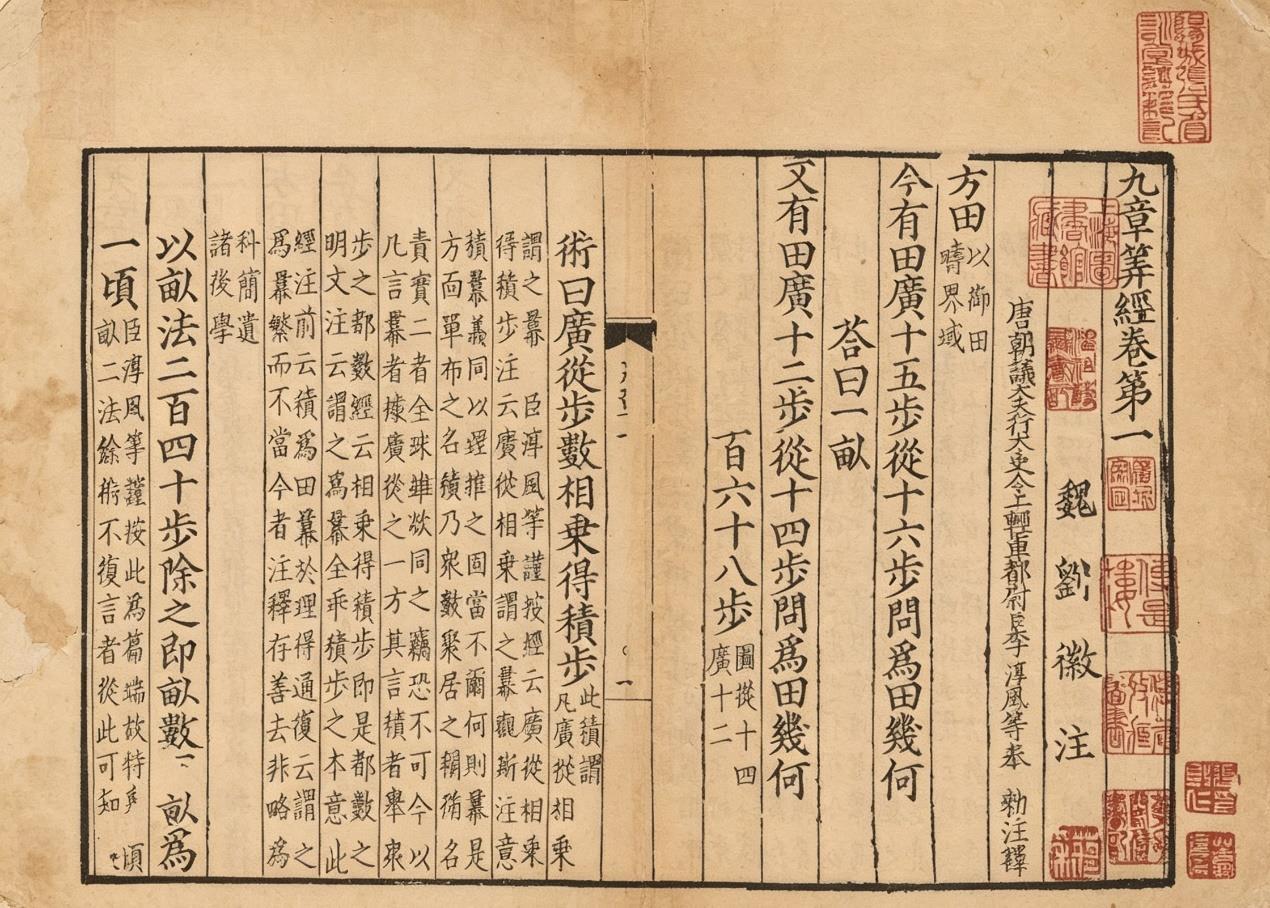 九章筭經卷第一
魏 劉 徽 注
唐朝議大夫行太史令上輕車都尉臣李淳風等奉 勅注釋
方田
以御田
疇界域
今有田廣十五步從十六步問爲田幾何
荅曰一畝
又有田廣十二步從十四步問爲田幾何
百六十八步
圖從十四
廣十二
術曰廣從步數相乗得積步
此積謂
凡廣從相乗
謂之羃 臣淳風等謹按經云廣從相乗
得積步注云廣從相乗謂之羃觀斯注意
積羃義同以理推之固當不爾何則羃是
方面單布之名積乃衆數聚居之稱循名
責實二者全殊雖欲同之竊恐不可今以
凡言羃者據廣從之一方其言積者舉衆
步之都數經云相乗得積步即是都數之
明文注云謂之爲羃全乖積步之本意此
經注前云積爲田羃於理得通復云謂之
爲羃繁而不當今者注釋存善去非略爲
科簡遺
諸後學
以畝法二百四十步除之即畝數 畝爲
一頃
臣淳風等謹按此爲篇端故特 頃
畝二法餘術不復言者從此可知